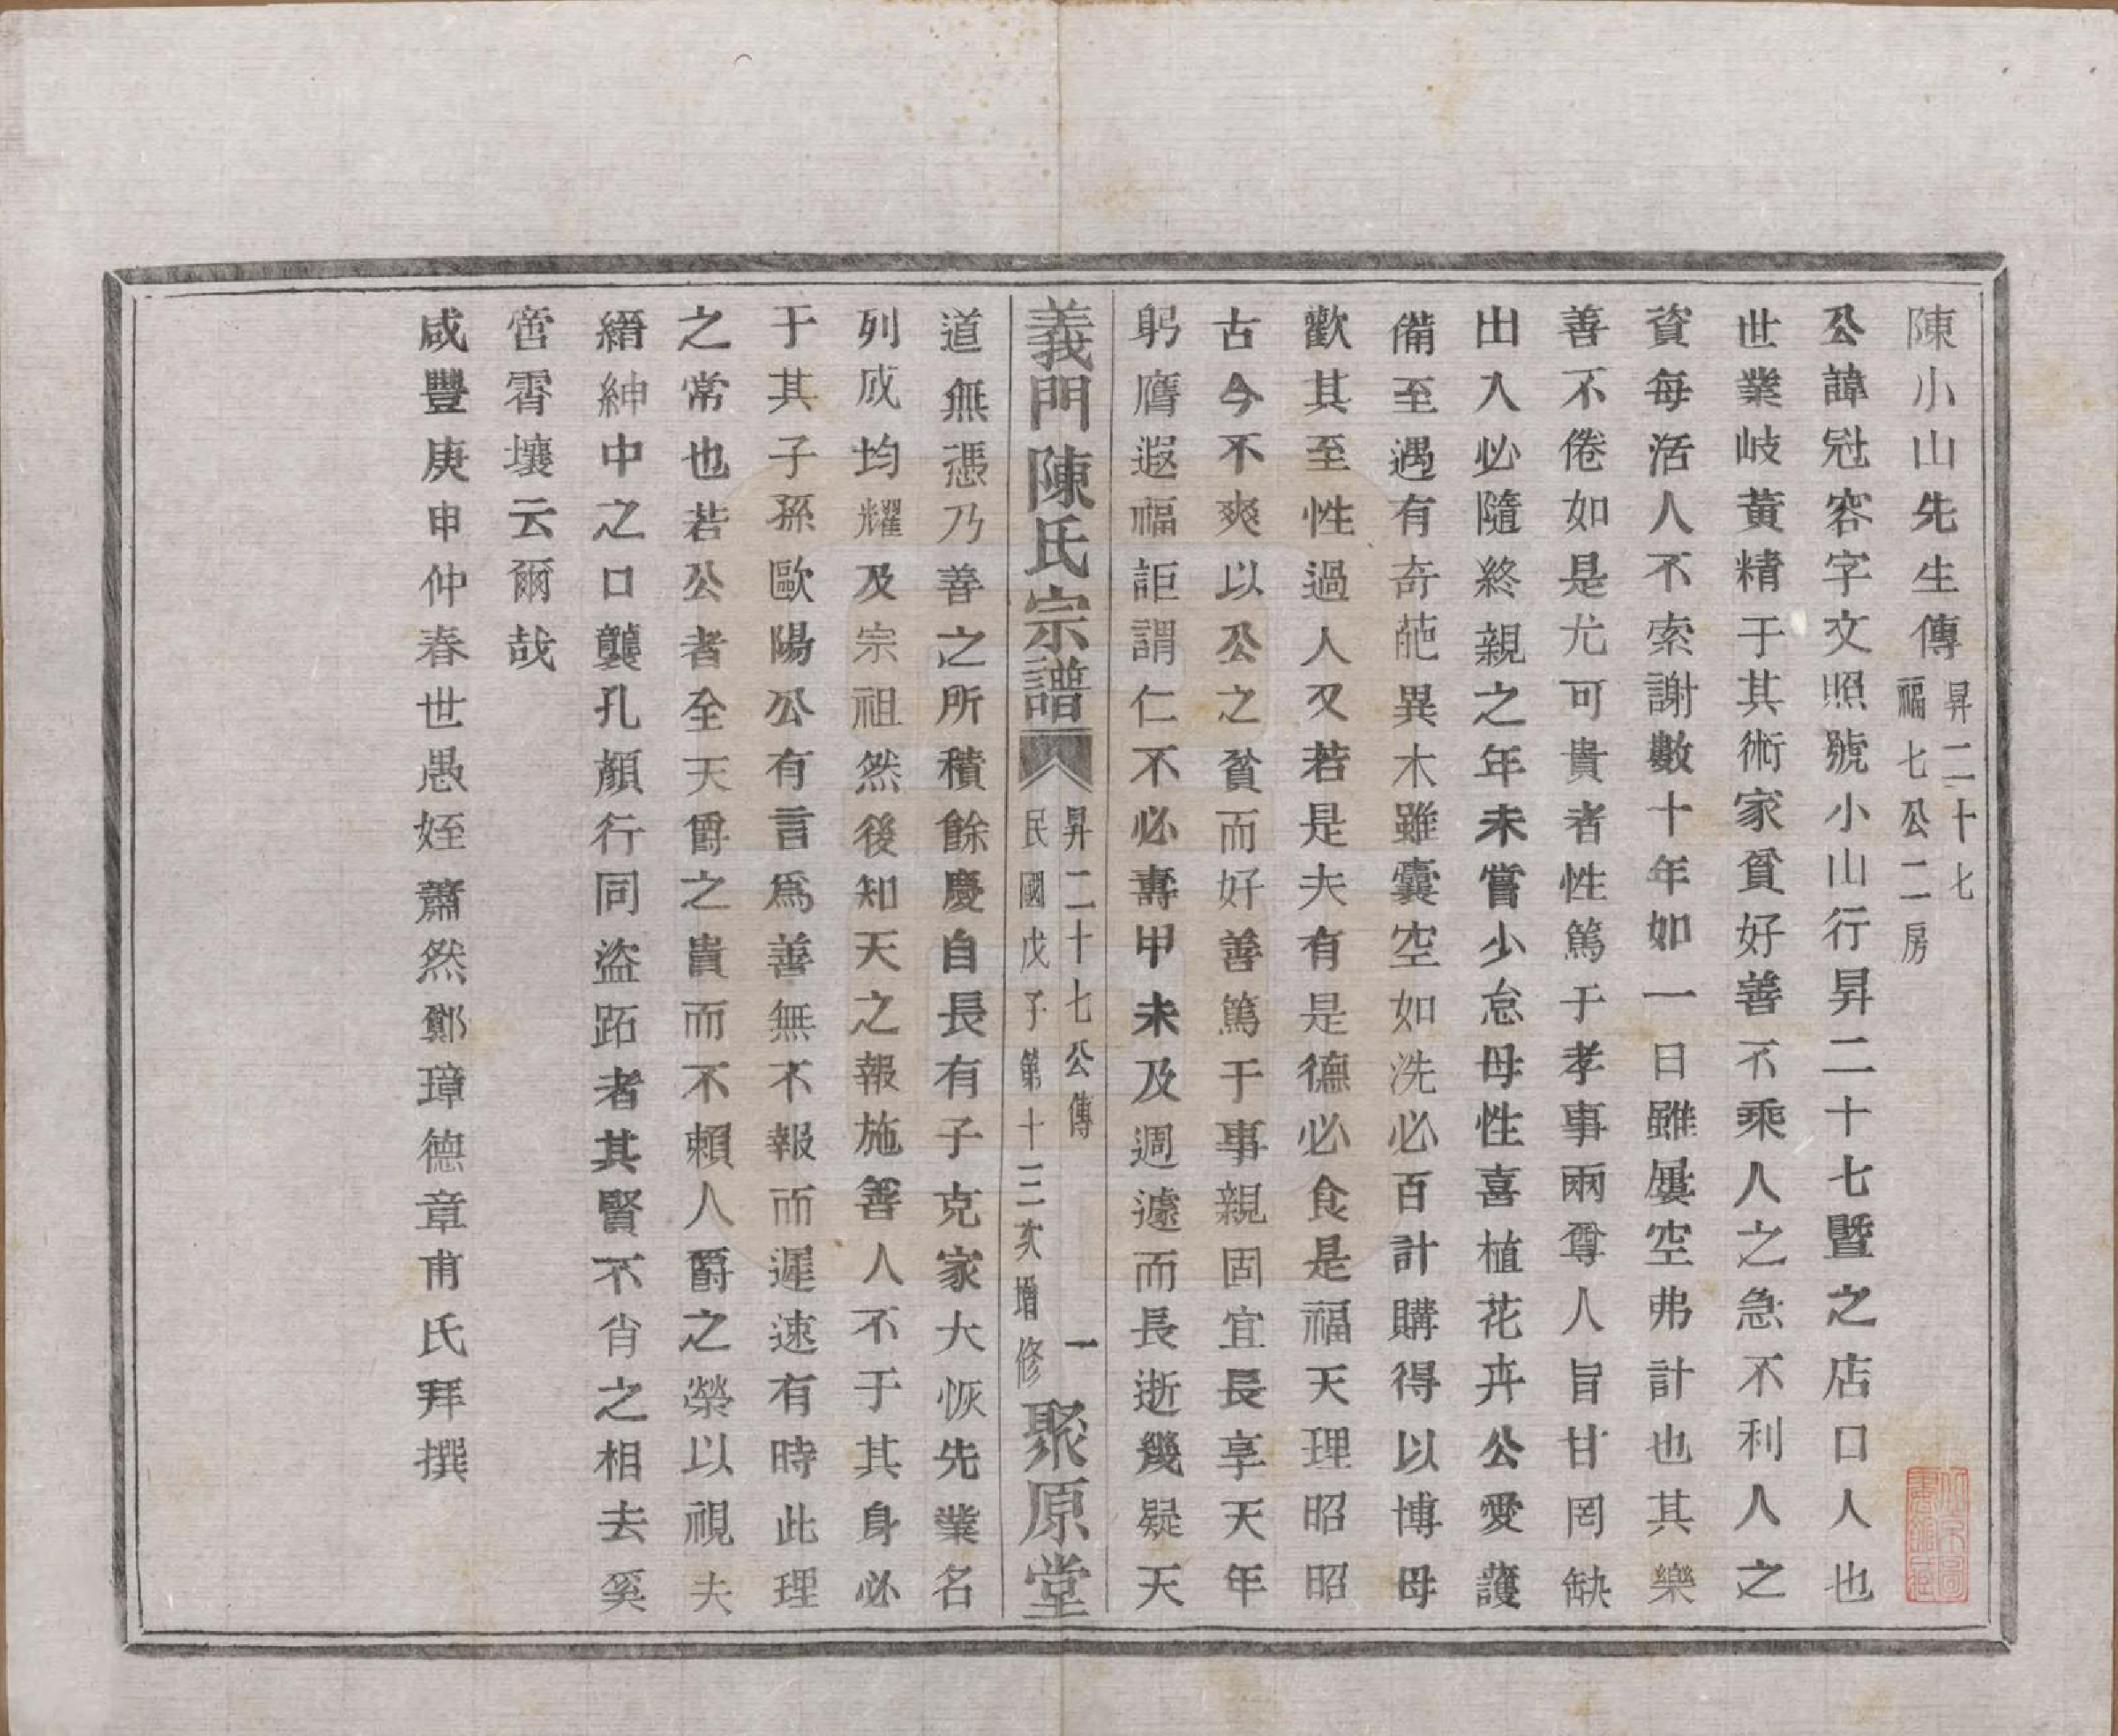 陳小山先生傳 昇二十七 福七公二房
公諱冠容字文照號小山行昇二十七暨之店口人也
世業岐黃精于其術家貧好善不乘人之急不利人之
資每活人不索謝數十年如一日雖屢空弗計也其樂
善不倦如是尤可貴者性篤于孝事兩尊人旨甘罔缺
出入必隨終親之年未嘗少怠母性喜植花卉公愛護
備至遇有奇葩異木雖囊空如洗必百計購得以博母
歡其至性過人又若是夫有是德必食是福天理昭昭
古今不爽以公之貧而好善篤于事親固宜長享天年
躬膺遐福詎謂仁不必壽甲未及週遽而長逝幾疑天
義門陳氏宗譜 昇二十七公傳 一 民國戊子第十三次增修 聚原堂
道無憑乃善之所積餘慶自長有子克家大恢先業名
列成均耀及宗祖然後知天之報施善人不于其身必
于其子孫歐陽公有言爲善無不報而遲速有時此理
之常也若公者全天爵之貴而不賴人爵之榮以視夫
縉紳中之口襲孔顏行同盜跖者其賢不肖之相去奚
啻霄壤云爾哉
咸豐庚申仲春世愚姪蕭然鄭璋德章甫氏拜撰